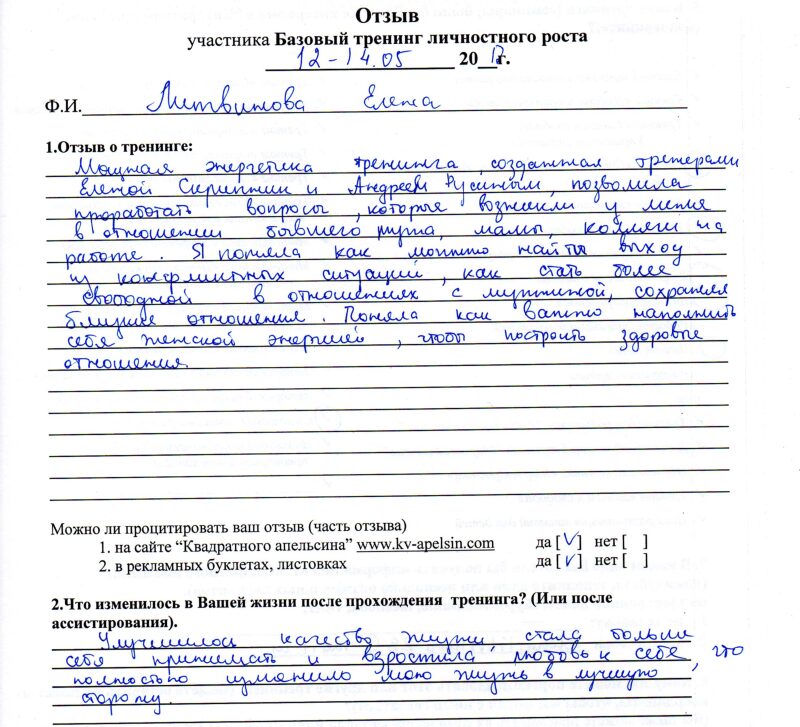 Отзыв
участника Базовый тренинг личностного роста
12-14.05 2017г.
Ф.И. Литвинова Елена
1.Отзыв о тренинге:
Мощная энергетика тренинга, созданная тренерами
Еленой Скрипник и Андреем Русиным, позволила
проработать вопросы, которые возникли у меня
в отношении бывшего мужа, мамы, коллеги на
работе. Я поняла как можно найти выход
из конфликтных ситуаций, как стать более
свободной в отношениях с мужчиной, сохраняя
близкие отношения. Поняла как важно наполнить
себя женской энергией, чтобы построить здоровые
отношения
Можно ли процитировать ваш отзыв (часть отзыва)
1. на сайте “Квадратного апельсина” www.kv-apelsin.com да [V] нет [ ]
2. в рекламных буклетах, листовках да [V] нет [ ]
2.Что изменилось в Вашей жизни после прохождения тренинга? (Или после
ассистирования).
Улучшилось качество жизни, стала больше
себя принимать и взрастила любовь к себе, что
полностью изменило мою жизнь в лучшую
сторону.